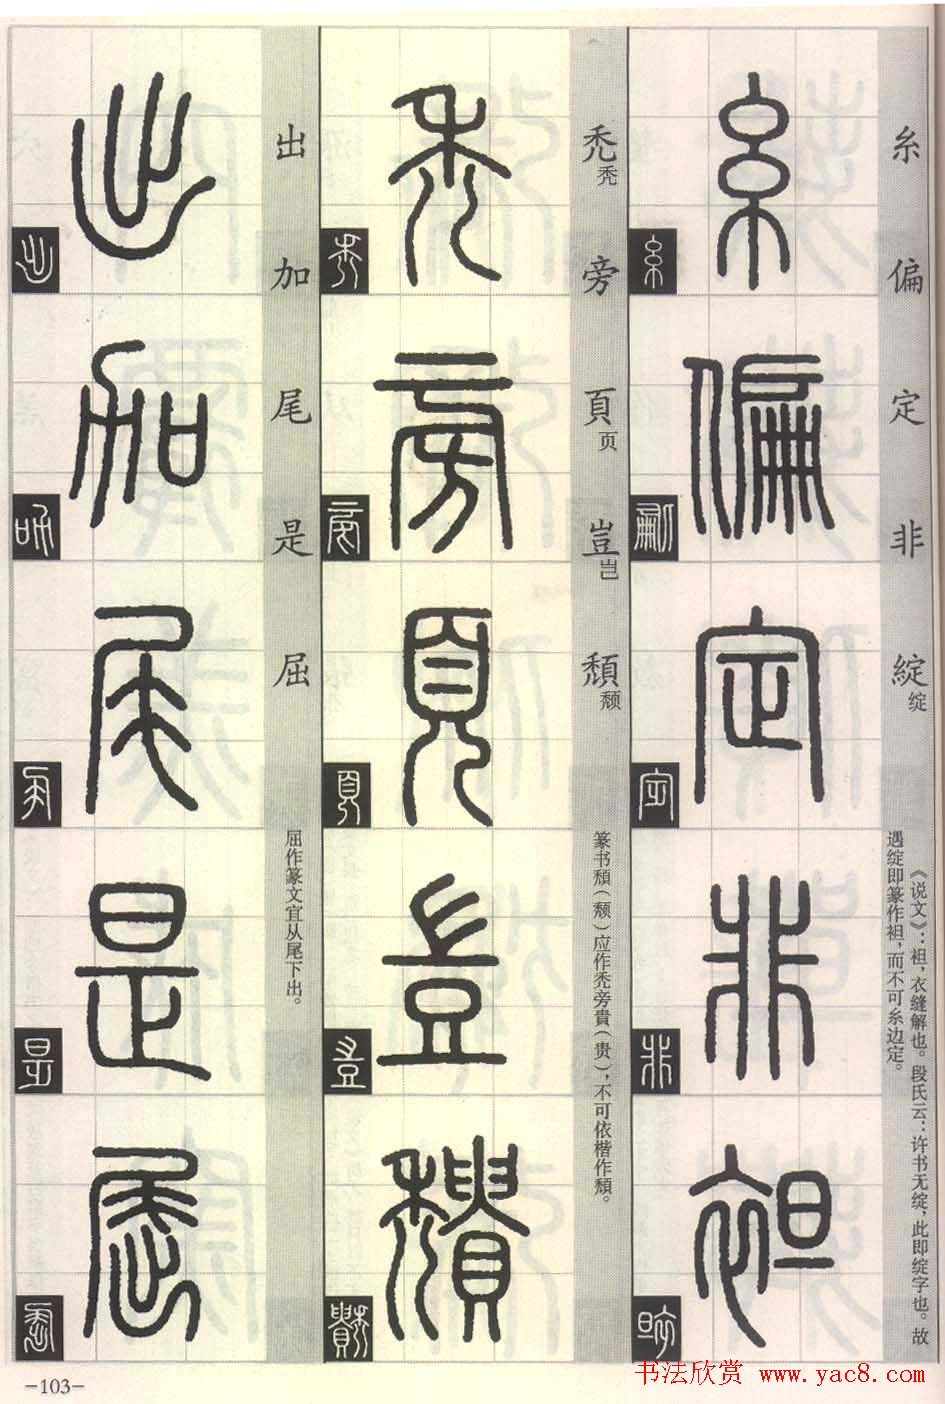 糸偏定非綻绽
《说文》：袒，衣缝解也。段氏云：许书无绽，此即绽字也。故
遇绽即篆作袒，而不可糸边定。
禿秃旁頁页豈岂頹颓
篆书頹（颓）应作秃旁貴（贵），不可依楷作頹。
出加尾是屈
屈作篆文宜从尾下出。
-103-
书法欣赏 www.yac8.com